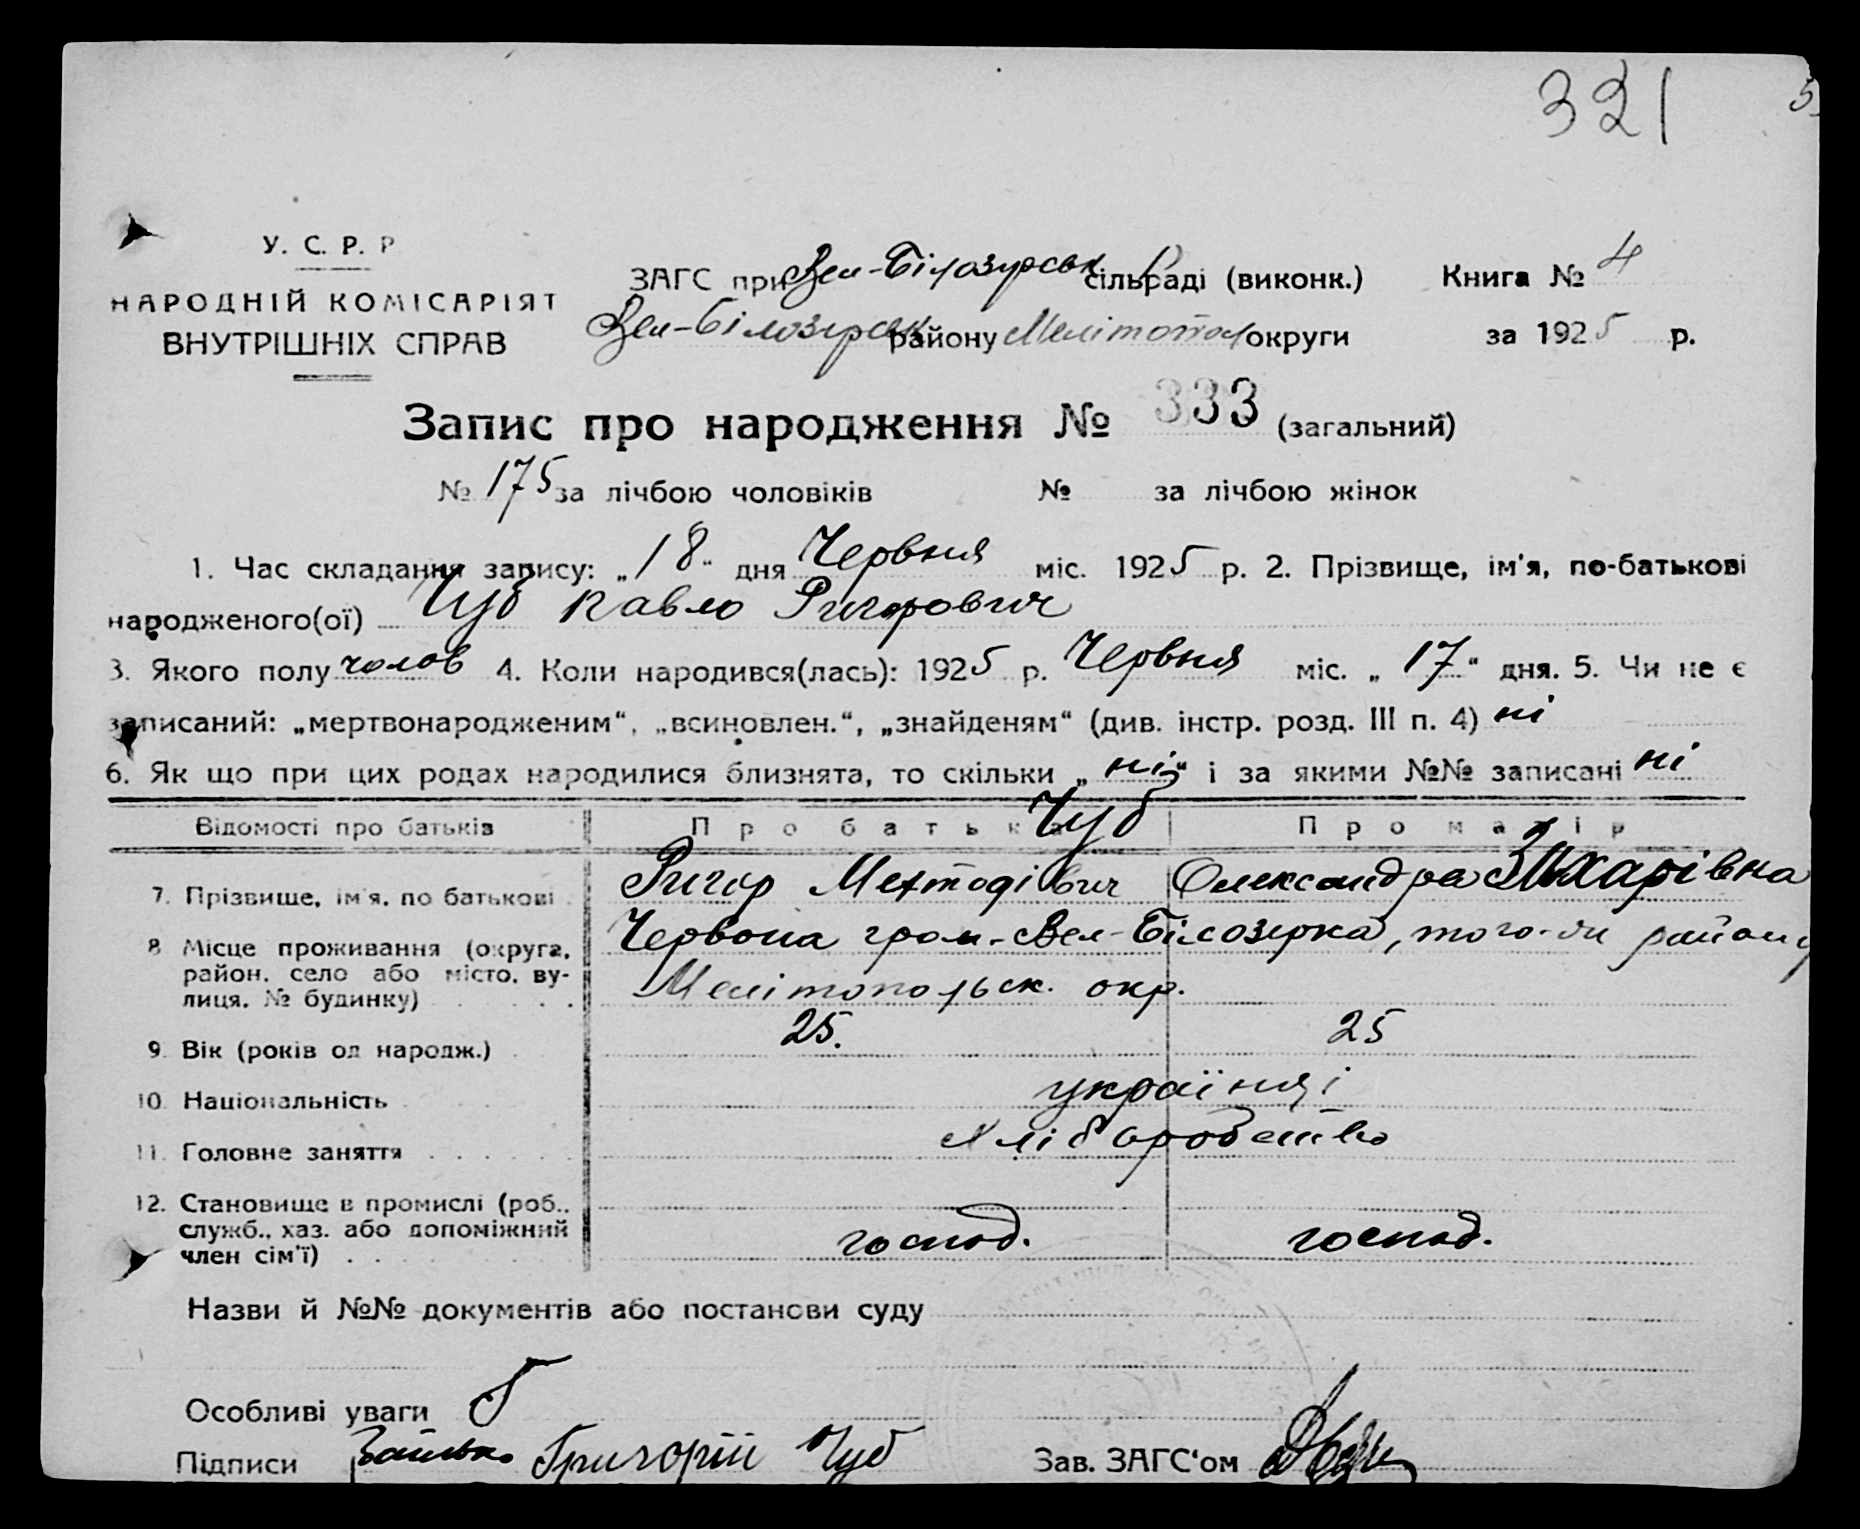 321
5
У. С. Р. Р
НАРОДНІЙ КОМІСАРІЯТ
ВНУТРІШНІХ СПРАВ
ЗАГС при Вел-Білозирськ сільраді (виконк.) Книга № 4
Вел-Білозирськ району Мелітопол округи за 1925 р.
Запис про народження № 333 (загальний)
№ 175 за лічбою чоловіків № за лічбою жінок
1. Час складання запису: „18“ дня Червня міс. 1925 р. 2. Прізвище, ім'я, по-батькові
народженого(ої) Чуб Павло Ригорович
3. Якого полу чолов 4. Коли народився(лась): 1925 р. Червня міс. „17“ дня. 5. Чи не є
записаний: „мертвонародженим“, „всиновлен.“, „знайденям“ (див. інстр. розд. III п. 4) ні
6. Як що при цих родах народилися близнята, то скільки „ні“ і за якими №№ записані ні
Відомості про батьків Про батька Про матір
Чуб
7. Прізвище, ім'я, по батькові Ригор Мехтодівич Олександра Захарівна
8 Місце проживання (округа, район, село або місто, ву-лиця, № будинку) Червона гром-Вел-Білозирка, того-ж району
Мелітопольск. окр.
9. Вік (років од народж.) 25. 25
10. Національність українці
11. Головне заняття хліборобство
12. Становище в промислі (роб..
служб., хаз. або допоміжний
член сім'ї) господ. господ.
Назви й №№ документів або постанови суду
Особливі уваги
Підписи Батько Григорій Чуб Зав. ЗАГС'ом